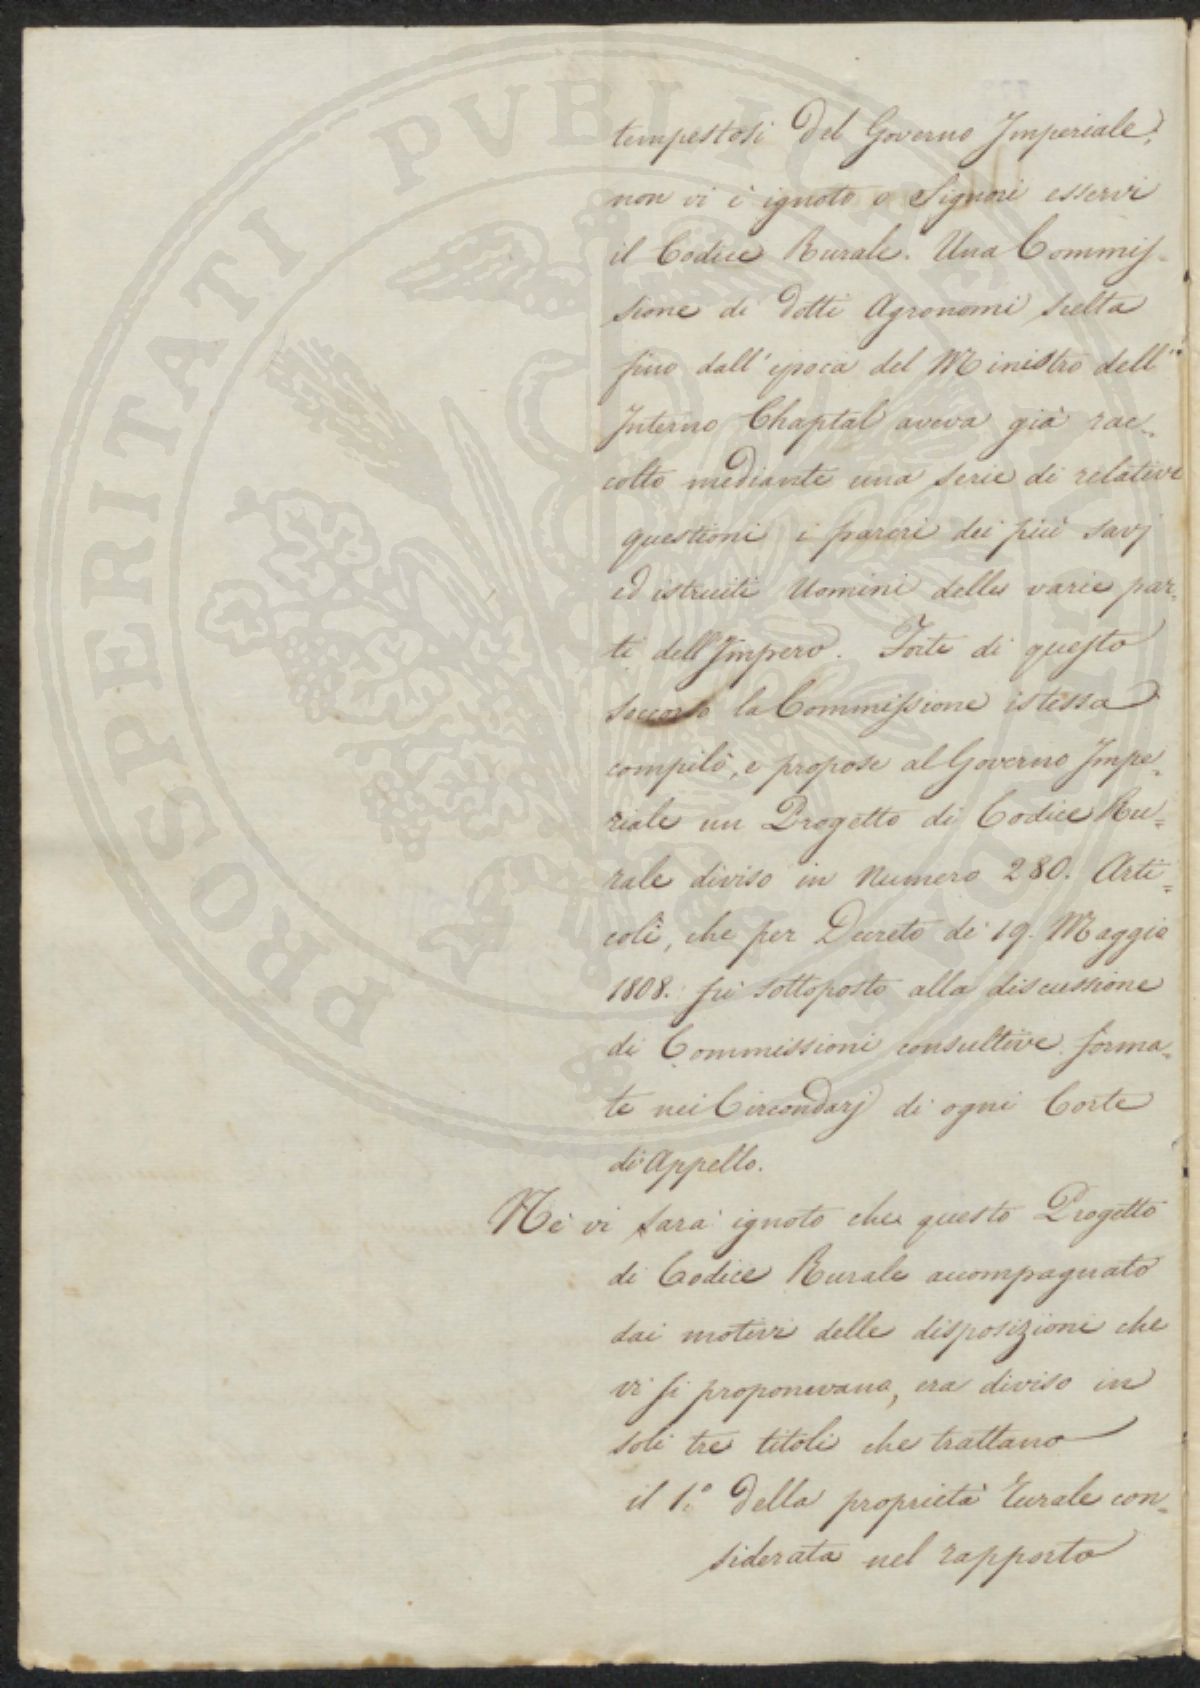 tempestosi del Governo Imperiale,
non vi è ignoto o Signori esservi
il Codice Rurale. Una Commis-
sione di dotti Agronomi scelta
fino dall'epoca del Ministro dell'
Interno Chaptal aveva già rac-
colto mediante una serie di relative
questioni i pareri dei più savj
ed istruiti Uomini delle varie par-
ti dell'Impero. Forte di questo
soccorso la Commissione istessa
compilò, e propose al Governo Impe-
riale un Progetto di Codice Ru-
rale diviso in Numero 280. Arti-
coli, che per Decreto de' 19. Maggio
1808. fù sottoposto alla discussione
di Commissioni consultive forma-
te nei Circondarj di ogni Corte
di Appello.
Nè vi sarà ignoto che questo Progetto
di Codice Rurale accompagnato
dai motivi delle disposizioni che
vi si proponevano, era diviso in
soli tre titoli che trattano
il 1.º della proprietà rurale con-
siderata nel rapporto
PROSPERITATI PUBLICAE